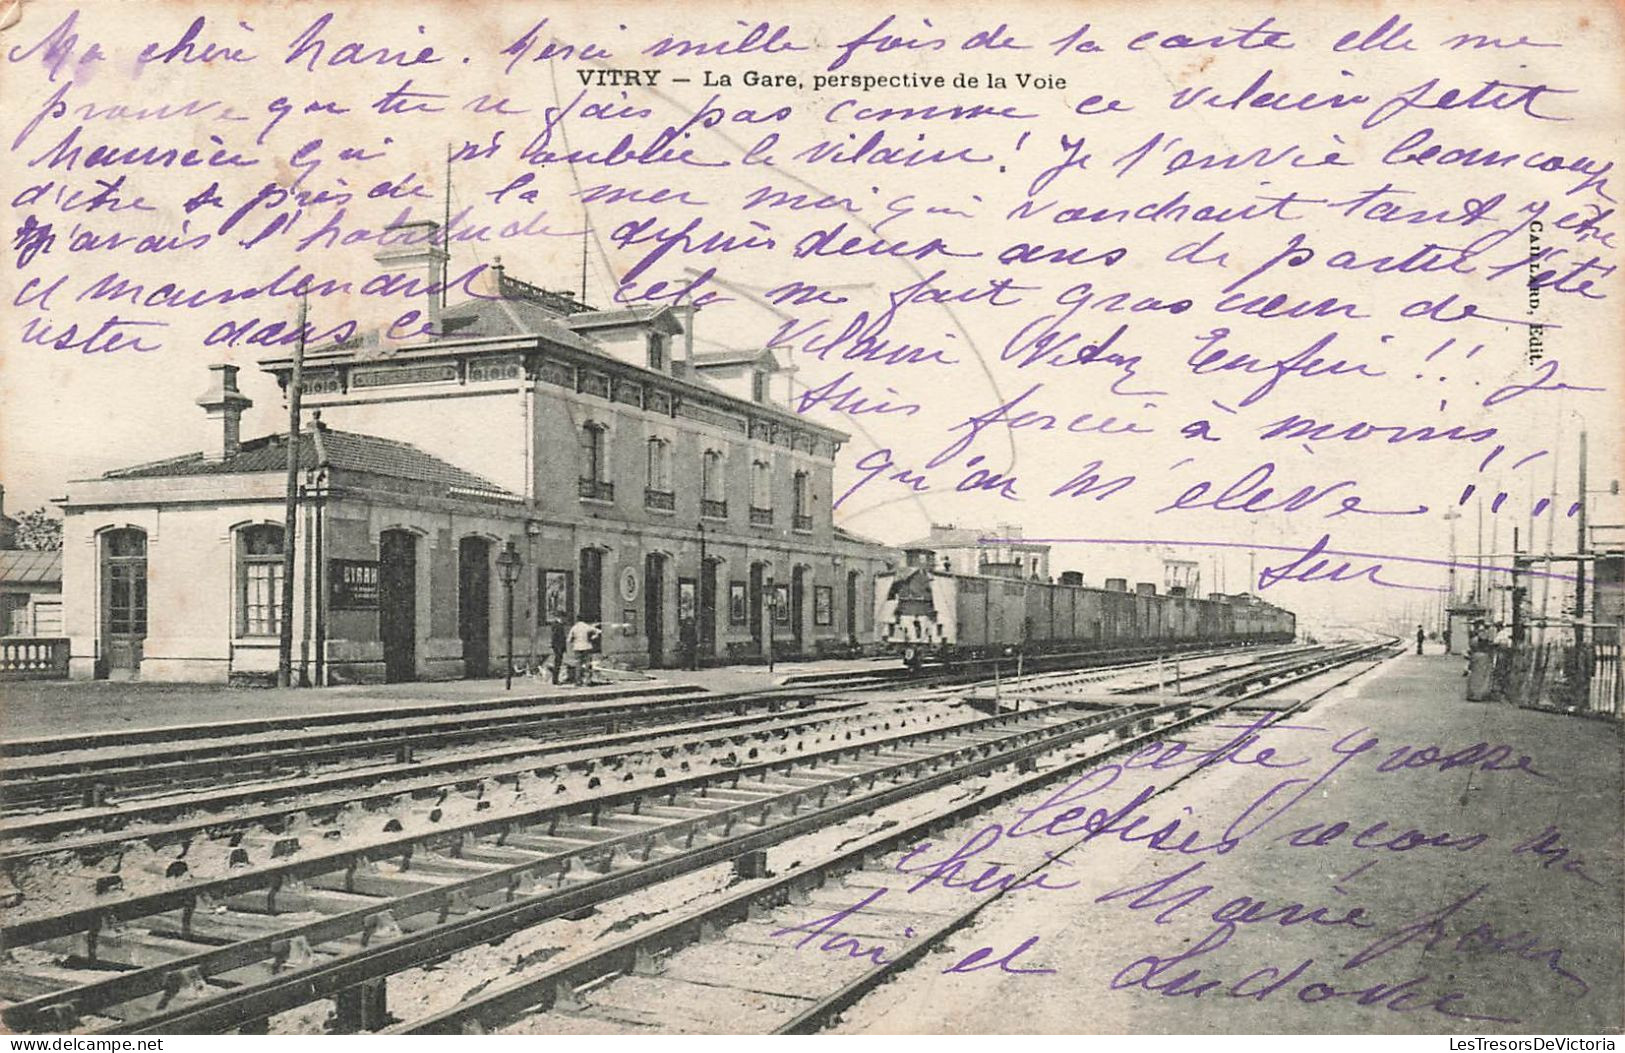 Ma chère Marie. Merci mille fois de la carte elle me
VITRY — La Gare, perspective de la Voie
prouve que tu ne fais pas comme ce vilain petit
qui m'oublie le vilain! Je t'envie beaucoup
d'être près de la mer moi qui voudrait tant y être
j'avais l'habitude depuis deux ans de partir l'été
et maintenant cela me fait gros cœur de
rester dans ce vilain Vitry Enfin!!. Je
suis forcée à moins
qu'on m'élève !!...
CAILLARD, Edit.
BYRRH
sur
cette grosse
bêtises reçois ma
chère Marie pour
toi et Ludovic
LesTresorsDeVictoria